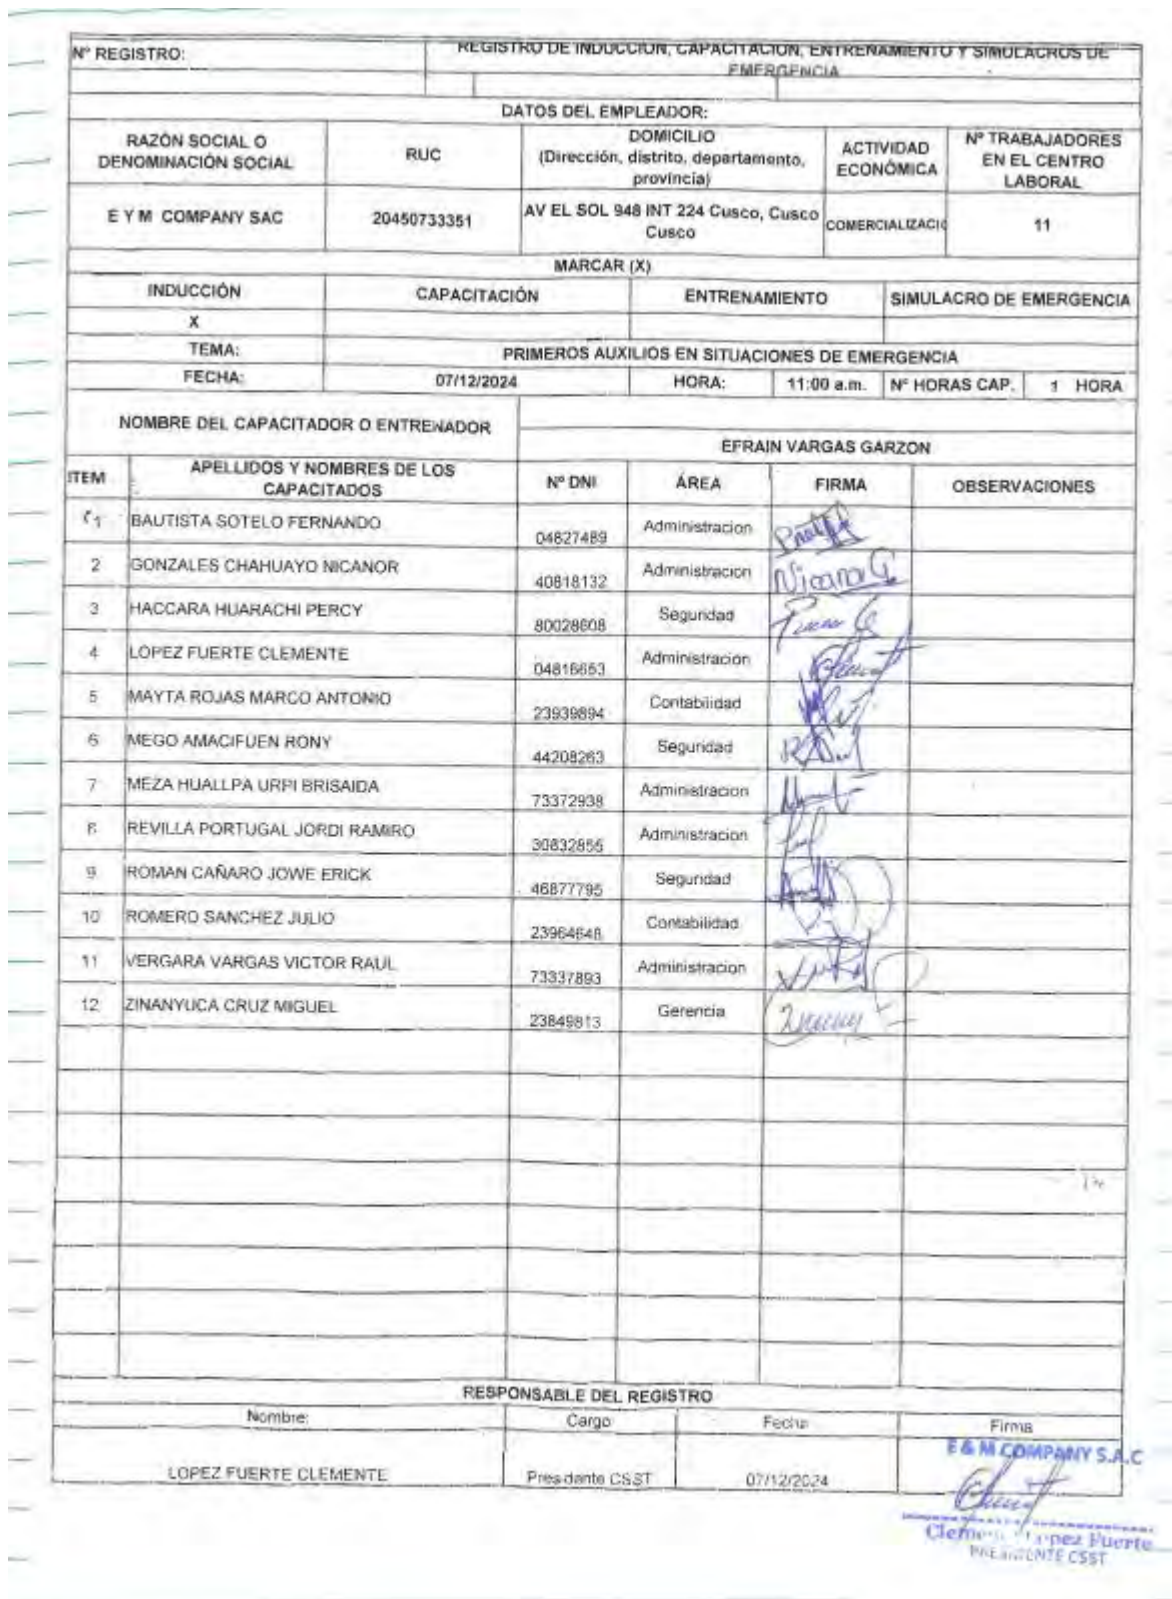 Nº REGISTRO:
REGISTRO DE INDUCCIÓN, CAPACITACIÓN, ENTRENAMIENTO Y SIMULACROS DE
EMERGENCIA
DATOS DEL EMPLEADOR:
RAZÓN SOCIAL O DENOMINACIÓN SOCIAL
RUC
DOMICILIO (Dirección, distrito, departamento, provincia)
ACTIVIDAD ECONÓMICA
Nº TRABAJADORES EN EL CENTRO LABORAL
E Y M COMPANY SAC
20450733351
AV EL SOL 948 INT 224 Cusco, Cusco Cusco
COMERCIALIZACIO
11
MARCAR (X)
INDUCCIÓN CAPACITACIÓN ENTRENAMIENTO SIMULACRO DE EMERGENCIA
X
TEMA: PRIMEROS AUXILIOS EN SITUACIONES DE EMERGENCIA
FECHA: 07/12/2024 HORA: 11:00 a.m. Nº HORAS CAP. 1 HORA
NOMBRE DEL CAPACITADOR O ENTRENADOR
EFRAIN VARGAS GARZON
ITEM APELLIDOS Y NOMBRES DE LOS CAPACITADOS Nº DNI ÁREA FIRMA OBSERVACIONES
1 BAUTISTA SOTELO FERNANDO 04827489 Administracion
2 GONZALES CHAHUAYO NICANOR 40818132 Administracion Nicanor G
3 HACCARA HUARACHI PERCY 80028608 Seguridad
4 LOPEZ FUERTE CLEMENTE 04816653 Administracion
5 MAYTA ROJAS MARCO ANTONIO 23939894 Contabilidad
6 MEGO AMACIFUEN RONY 44208263 Seguridad
7 MEZA HUALLPA URPI BRISAIDA 73372938 Administracion
8 REVILLA PORTUGAL JORDI RAMIRO 30832855 Administracion
9 ROMAN CAÑARO JOWE ERICK 46877795 Seguridad
10 ROMERO SANCHEZ JULIO 23964648 Contabilidad
11 VERGARA VARGAS VICTOR RAUL 73337893 Administracion
12 ZINANYUCA CRUZ MIGUEL 23849813 Gerencia
RESPONSABLE DEL REGISTRO
Nombre: Cargo Fecha Firma
LOPEZ FUERTE CLEMENTE Presidente CSST 07/12/2024
E & M COMPANY S.A.C
Clemente Lopez Fuerte
PRESIDENTE CSST